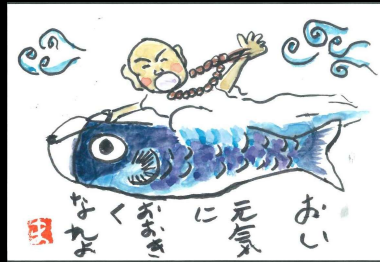 おい
元気
に
おおき
く
なれよ
ま